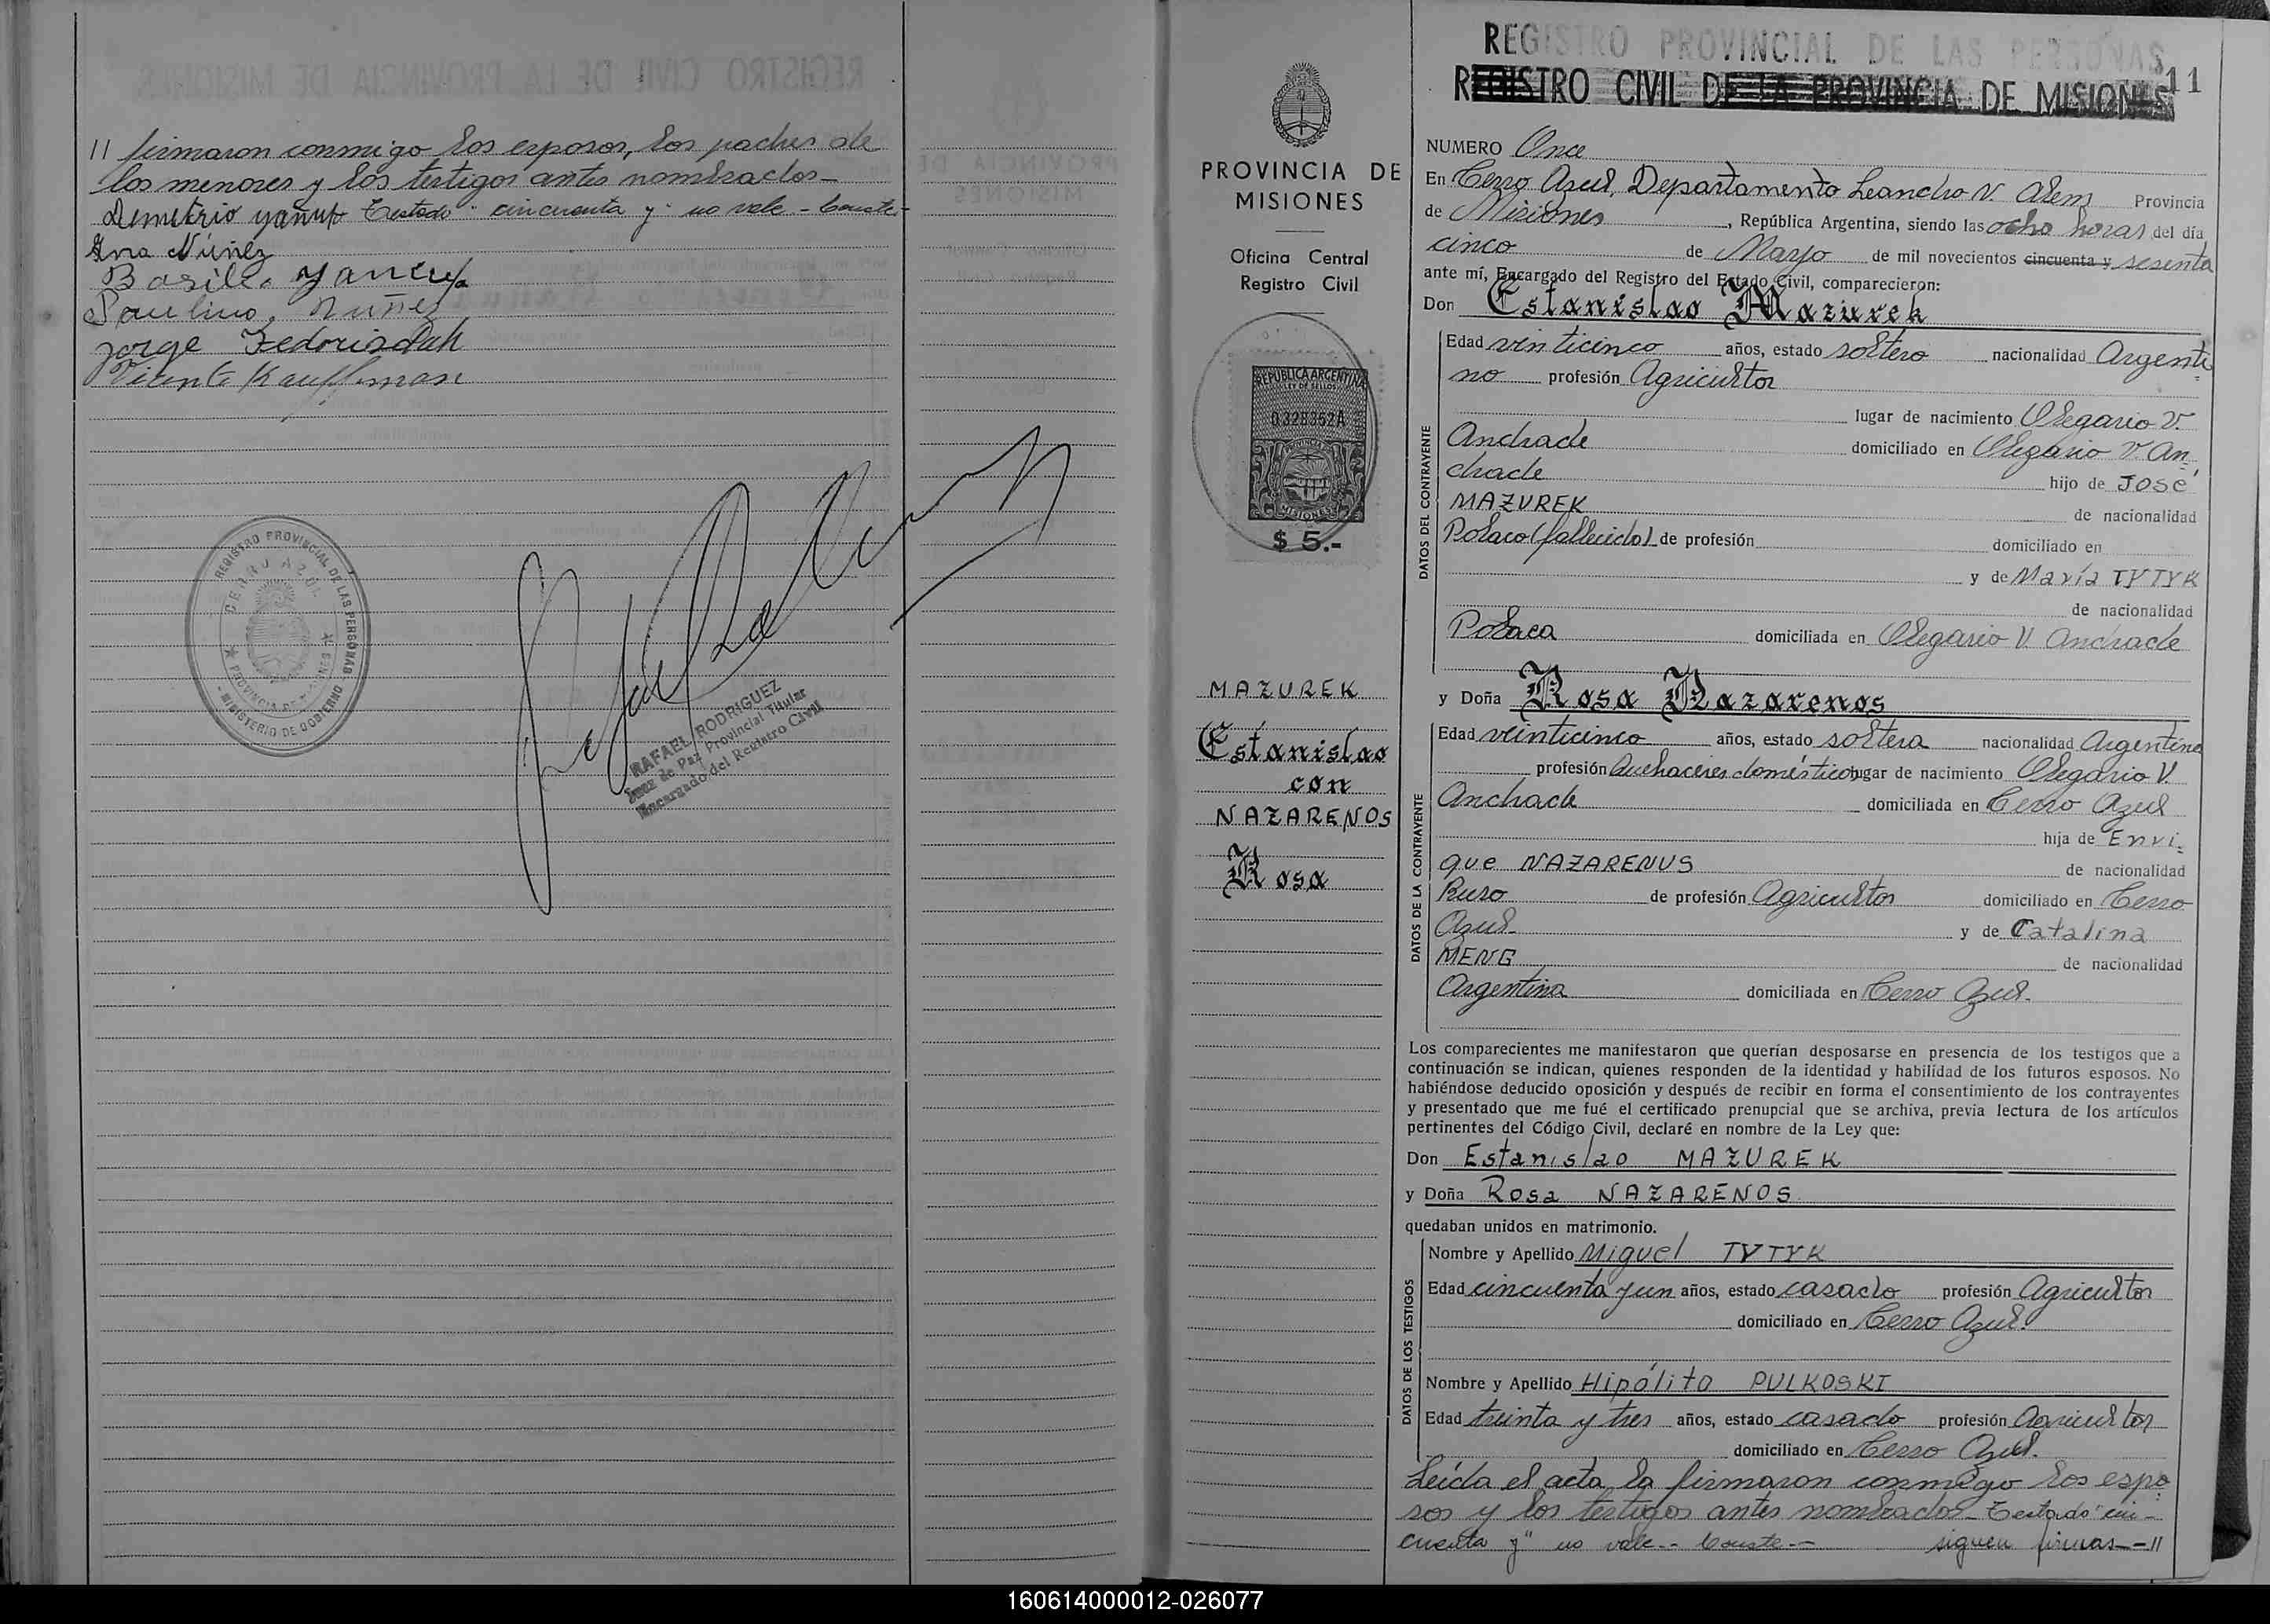 // firmaron conmigo los esposos, los padres de
los menores y los testigos antes nombrados-
Demetrio yañuk Testado "cincuenta y" no vale - Conste-
Ana Núñez
Basilio Yañuk
Paulino Nuñez
Jorge Fedorischak
Vicente Kauffman
REGISTRO PROVINCIAL DE LAS PERSONAS
CERRO AZUL
PROVINCIA DE MISIONES
MINISTERIO DE GOBIERNO
RAFAEL RODRIGUEZ
Juez de Paz Provincial Titular
Encargado del Registro Civil
PROVINCIA DE
MISIONES
Oficina Central
Registro Civil
REPUBLICA ARGENTINA
LEY DE SELLOS
0328352A
PROVINCIA
MISIONES
$ 5.-
MAZUREK
Estanislao
con
NAZARENOS
Rosa
REGISTRO PROVINCIAL DE LAS PERSONAS
REGISTRO CIVIL DE LA PROVINCIA DE MISIONES
11
NUMERO Once
En Cerro Azul, Departamento Leandro N. Alem Provincia
de Misiones, República Argentina, siendo las ocho horas del día
cinco de Mayo de mil novecientos cincuenta y sesenta
ante mí, Encargado del Registro del Estado Civil, comparecieron:
Don Estanislao Mazurek
DATOS DEL CONTRAYENTE
Edad veinticinco años, estado soltero nacionalidad Argenti
no profesión Agricultor
lugar de nacimiento Olegario V.
Andrade domiciliado en Olegario V. An
drade hijo de José
MAZUREK de nacionalidad
Polaco (fallecido) de profesión domiciliado en
y de María TYTYK
de nacionalidad
Polaca domiciliada en Olegario V. Andrade
y Doña Rosa Nazarenos
DATOS DE LA CONTRAYENTE
Edad veinticinco años, estado soltera nacionalidad Argentina
profesión Quehaceres domésticos lugar de nacimiento Olegario V.
Andrade domiciliada en Cerro Azul
hija de Enri
que NAZARENUS de nacionalidad
Ruso de profesión Agricultor domiciliado en Cerro
Azul y de Catalina
MENG de nacionalidad
Argentina domiciliada en Cerro Azul.
Los comparecientes me manifestaron que querían desposarse en presencia de los testigos que a
continuación se indican, quienes responden de la identidad y habilidad de los futuros esposos. No
habiéndose deducido oposición y después de recibir en forma el consentimiento de los contrayentes
y presentado que me fué el certificado prenupcial que se archiva, previa lectura de los artículos
pertinentes del Código Civil, declaré en nombre de la Ley que:
Don Estanislao MAZUREK
y Doña Rosa NAZARENOS
quedaban unidos en matrimonio.
DATOS DE LOS TESTIGOS
Nombre y Apellido Miguel TYTYK
Edad cincuenta y un años, estado casado profesión Agricultor
domiciliado en Cerro Azul.
Nombre y Apellido Hipólito PULKOSKI
Edad treinta y tres años, estado casado profesión Agricultor
domiciliado en Cerro Azul.
Leída el acta, la firmaron conmigo los espo
sos y los testigos antes nombrados - Testado "cin-
cuenta y" no vale -- Conste -- siguen firmas--//
160614000012-026077